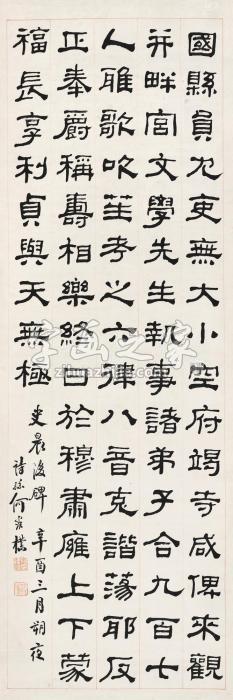 國縣員冗吏無大小空府竭寺咸俾來觀
并畔宮文學先生執事諸弟子合九百七
人雅歌吹笙考之六律八音克諧蕩耶反
正奉爵稱壽相樂終日於穆肅廱上下蒙
福長享利貞與天無極
史晨後碑 辛酉三月朔夜
詩孫何維樸
字画之家